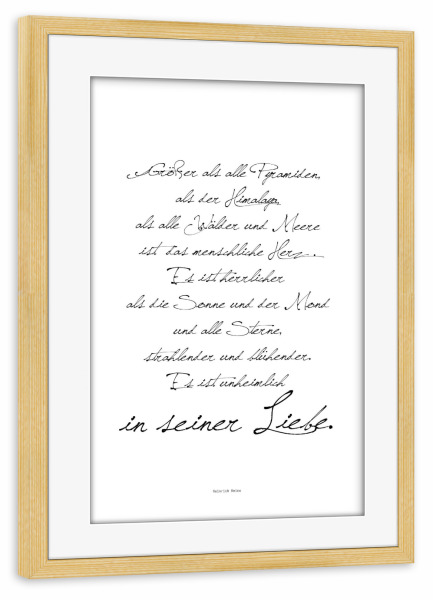 Größer als alle Pyramiden,
als der Himalaya,
als alle Wälder und Meere
ist das menschliche Herz.
Es ist herrlicher
als die Sonne und der Mond
und alle Sterne,
strahlender und blühender.
Es ist unheimlich
in seiner Liebe.